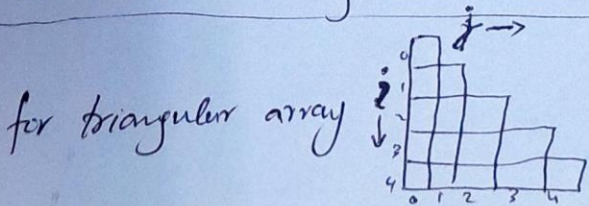 j →
for triangular array i ↓
0
1
2
3
4
0 1 2 3 4